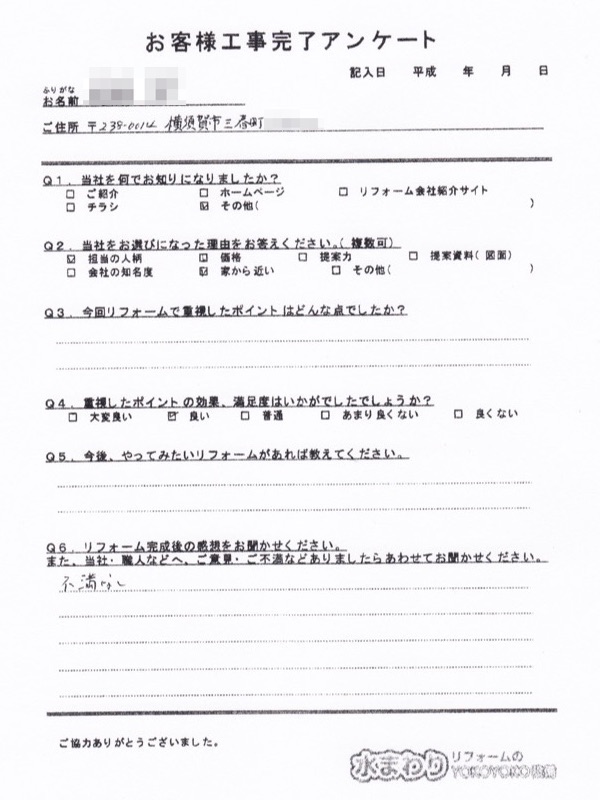 お客様工事完了アンケート
記入日 平成 年 月 日
ふりがな
お名前
ご住所 〒238-0014 横須賀市三春町
Q1．当社を何でお知りになりましたか？
□ ご紹介 □ ホームページ □ リフォーム会社紹介サイト
□ チラシ ☑ その他( )
Q2．当社をお選びになった理由をお答えください。(複数可)
☑ 担当の人柄 ☑ 価格 □ 提案力 □ 提案資料(図面)
□ 会社の知名度 ☑ 家から近い □ その他( )
Q3．今回リフォームで重視したポイントはどんな点でしたか？
Q4．重視したポイントの効果、満足度はいかがでしたでしょうか？
□ 大変良い ☑ 良い □ 普通 □ あまり良くない □ 良くない
Q5．今後、やってみたいリフォームがあれば教えてください。
Q6．リフォーム完成後の感想をお聞かせください。
また、当社・職人などへ、ご意見・ご不満などありましたらあわせてお聞かせください。
不満なし
ご協力ありがとうございました。
水まわり リフォームの
YOKOYOKO設備